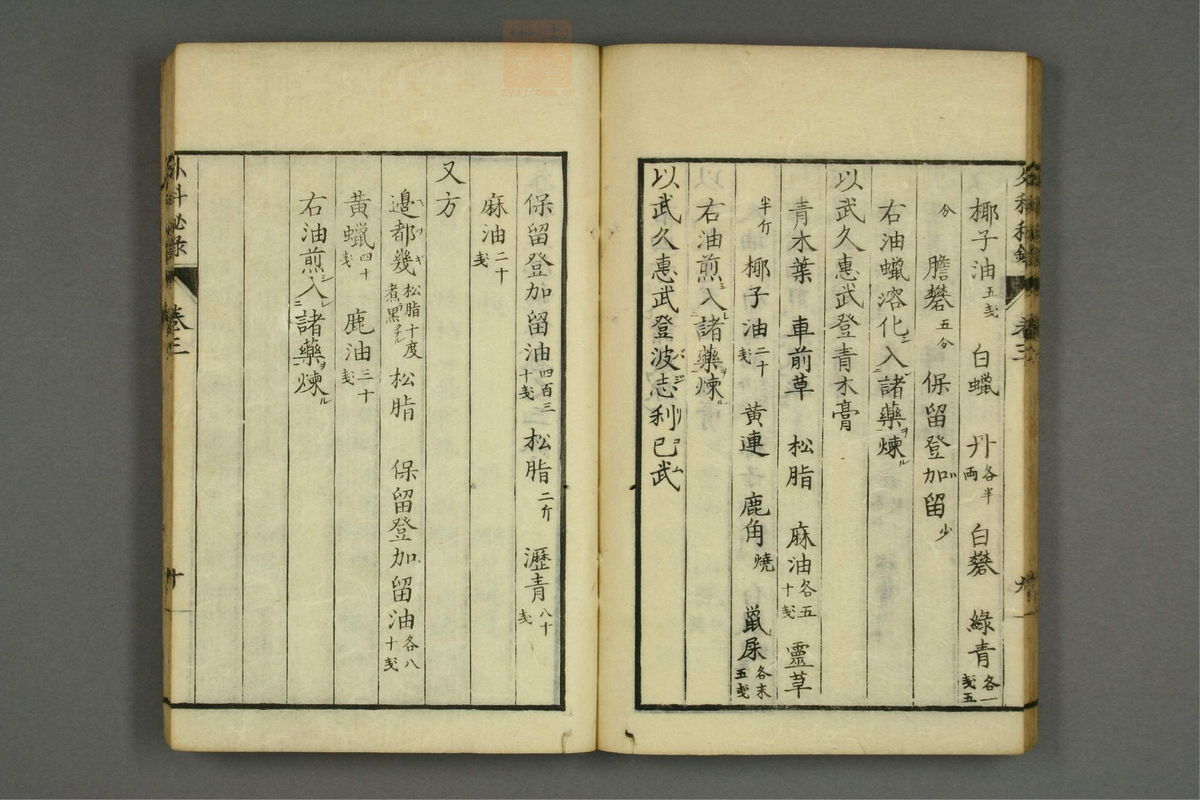 椰子油五戔 白蠟 丹各半両 白礬 綠青各一戔五
分 膽礬五分 保留登加留少
右油蠟溶化ニ入レ諸藥ヲ煉ル
以武久惠武登青木膏
青木葉 車前草 松脂 麻油各五十戔 靈草
半斤 椰子油二十戔 黄連 鹿角燒 鼠屎各末五戔
右油煎ニ入レ諸藥ヲ煉ル
以武久惠武登波志利已武バジリコム
外科秘錄 卷三
保留登加留油四百三十戔 松脂二斤 瀝青八十戔
麻油二十戔
又方
邊都幾ヘツキ松脂十度煮黒 松脂 保留登加留油各八十戔
黄蠟四十戔 鹿油三十戔
右油煎シ入レ諸藥ヲ煉ル
外科秘錄 卷三 十
zysj.com.cn